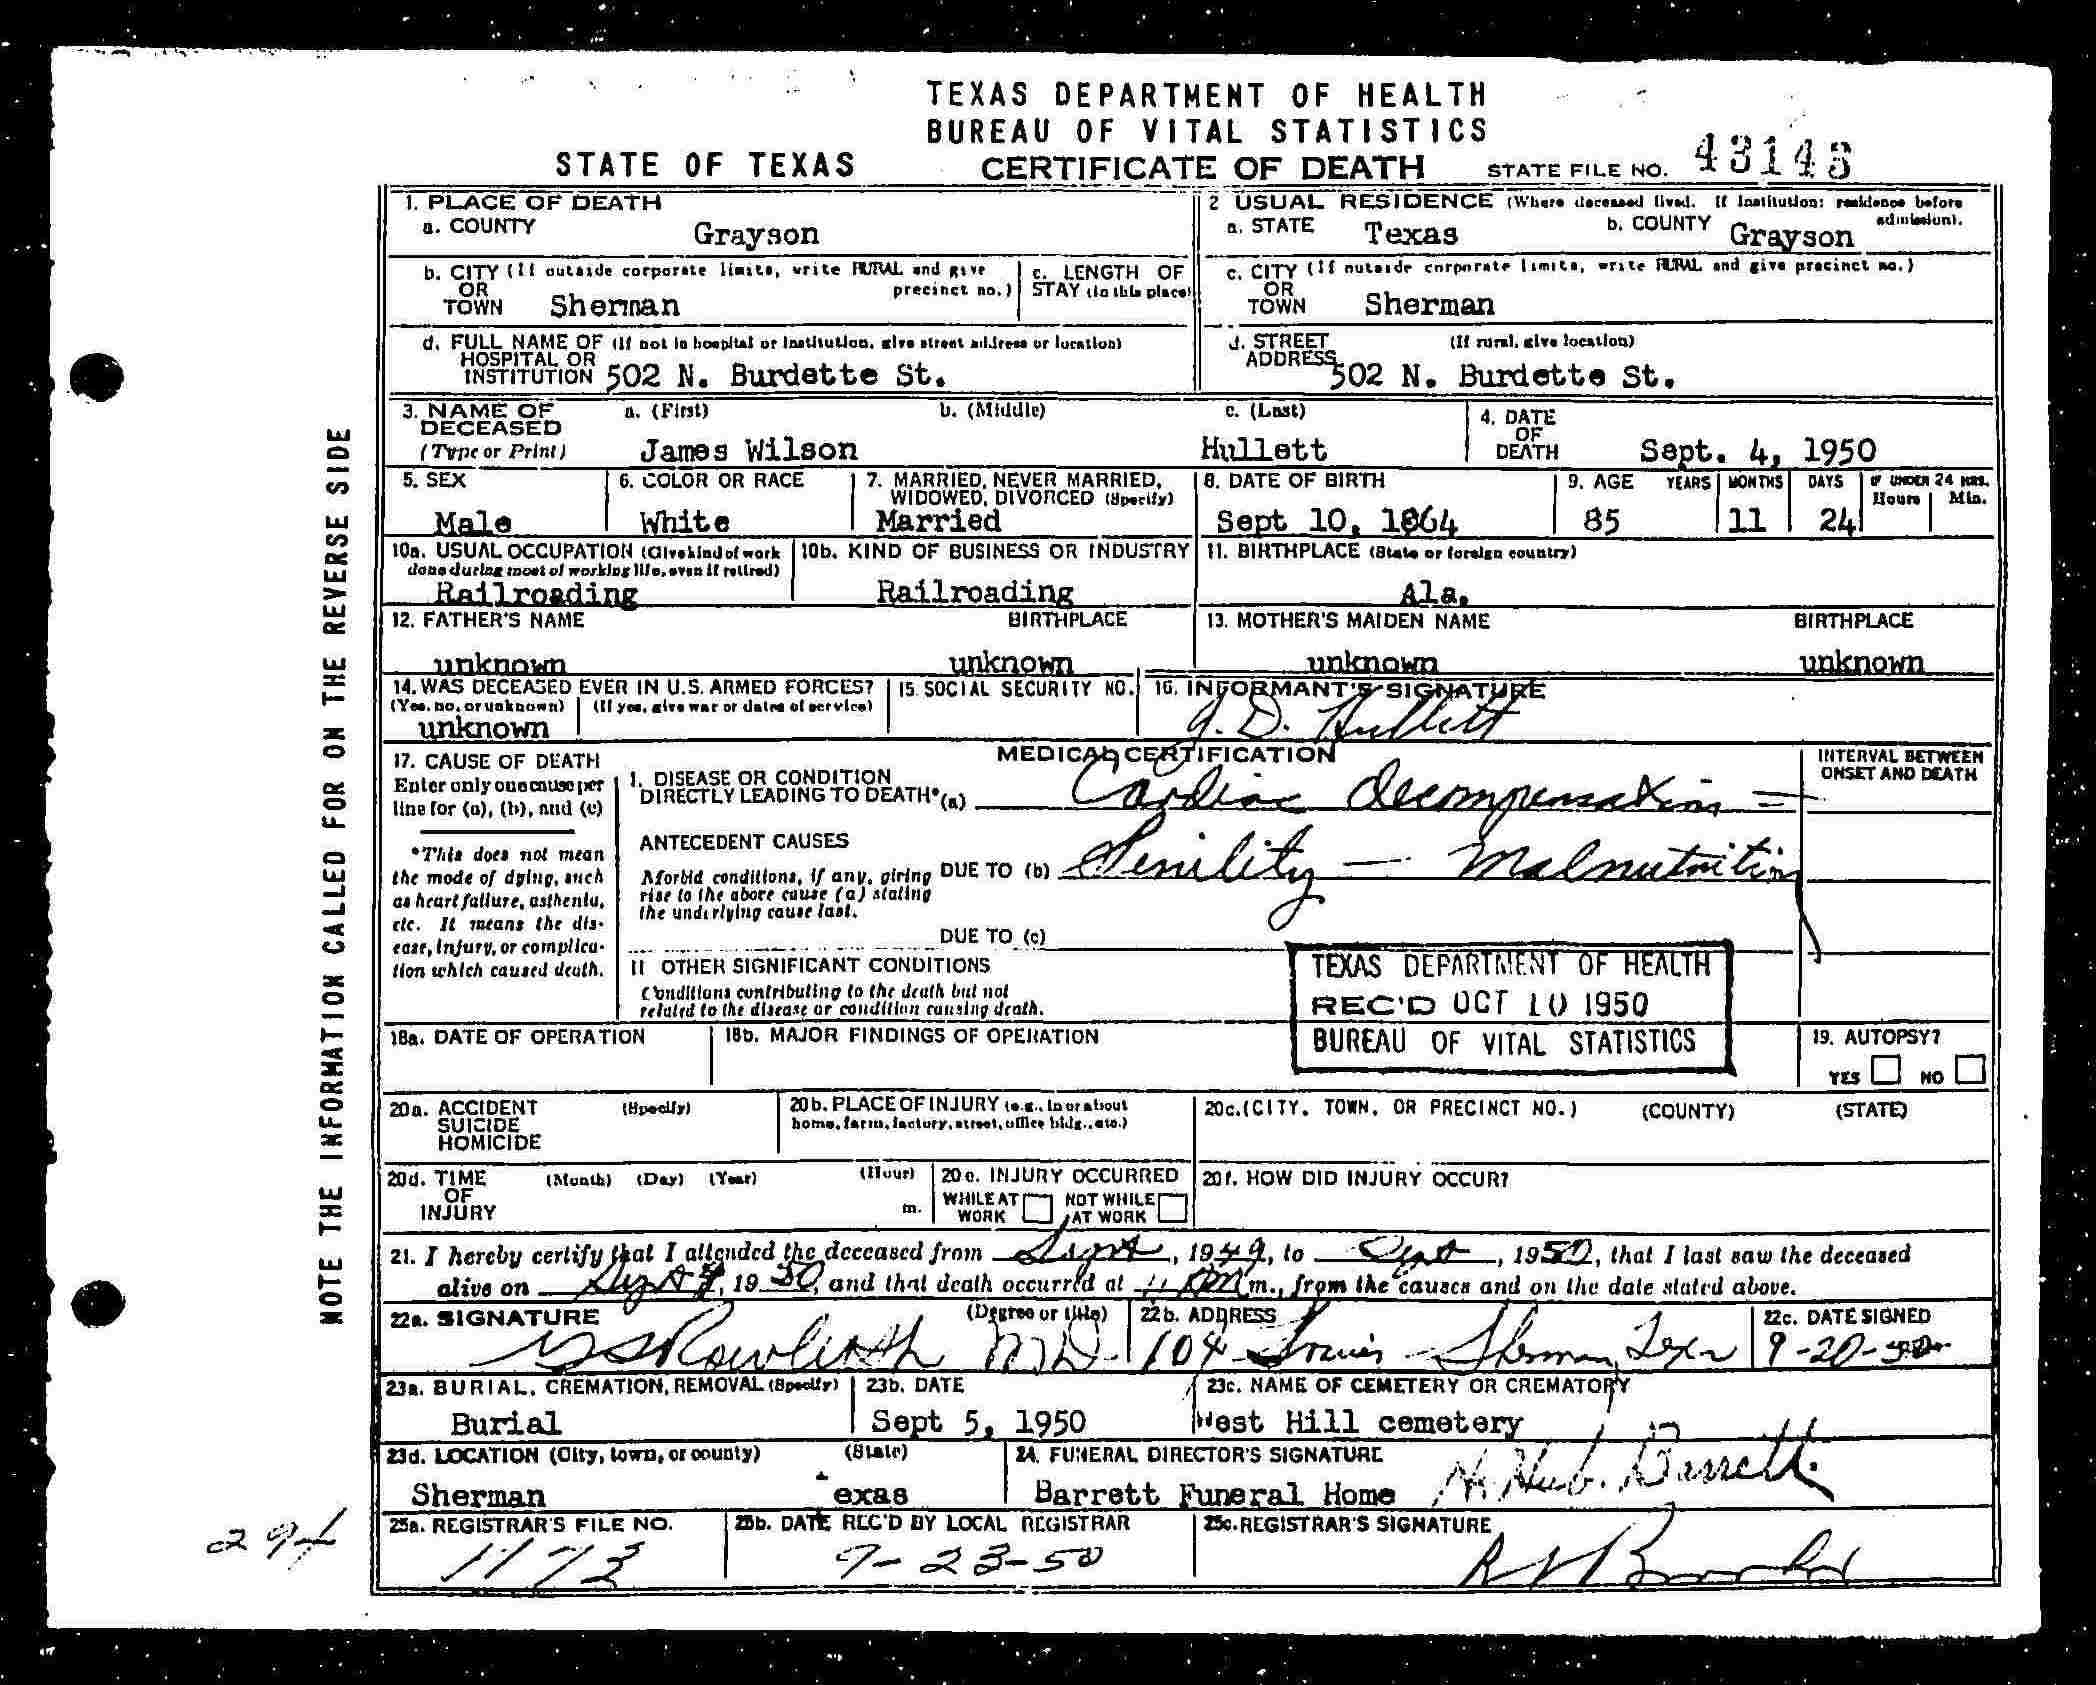 TEXAS DEPARTMENT OF HEALTH
BUREAU OF VITAL STATISTICS
STATE OF TEXAS CERTIFICATE OF DEATH STATE FILE NO. 43143
NOTE THE INFORMATION CALLED FOR ON THE REVERSE SIDE
1. PLACE OF DEATH
a. COUNTY Grayson
2 USUAL RESIDENCE (Where deceased lived. If institution: residence before admission).
a. STATE Texas b. COUNTY Grayson
b. CITY (If outside corporate limits, write RURAL and give precinct no.)
OR
TOWN Sherman
c. LENGTH OF
STAY (in this place)
c. CITY (If outside corporate limits, write RURAL and give precinct no.)
OR
TOWN Sherman
d. FULL NAME OF (If not in hospital or institution, give street address or location)
HOSPITAL OR
INSTITUTION 502 N. Burdette St.
d. STREET (If rural, give location)
ADDRESS 502 N. Burdette St.
3. NAME OF DECEASED a. (First) b. (Middle) c. (Last)
(Type or Print) James Wilson Hullett
4. DATE
OF
DEATH Sept. 4, 1950
5. SEX
Male
6. COLOR OR RACE
White
7. MARRIED, NEVER MARRIED,
WIDOWED, DIVORCED (Specify)
Married
8. DATE OF BIRTH
Sept 10, 1864
9. AGE YEARS MONTHS DAYS IF UNDER 24 HRS.
Hours Min.
85 11 24
10a. USUAL OCCUPATION (Give kind of work
done during most of working life, even if retired)
Railroading
10b. KIND OF BUSINESS OR INDUSTRY
Railroading
11. BIRTHPLACE (State or foreign country)
Ala.
12. FATHER'S NAME BIRTHPLACE
unknown unknown
13. MOTHER'S MAIDEN NAME BIRTHPLACE
unknown unknown
14. WAS DECEASED EVER IN U.S. ARMED FORCES?
(Yes, no, or unknown) (If yes, give war or dates of service)
unknown
15. SOCIAL SECURITY NO.
16. INFORMANT'S SIGNATURE
J. D. Hullett
MEDICAL CERTIFICATION
17. CAUSE OF DEATH
Enter only one cause per
line for (a), (b), and (c)
*This does not mean
the mode of dying, such
as heart failure, asthenia,
etc. It means the dis-
ease, injury, or complica-
tion which caused death.
I. DISEASE OR CONDITION
DIRECTLY LEADING TO DEATH*(a) Cardiac decompensation
ANTECEDENT CAUSES
Morbid conditions, if any, giving
rise to the above cause (a) stating
the underlying cause last.
DUE TO (b) Senility — Malnutrition
DUE TO (c)
INTERVAL BETWEEN
ONSET AND DEATH
II OTHER SIGNIFICANT CONDITIONS
Conditions contributing to the death but not
related to the disease or condition causing death.
TEXAS DEPARTMENT OF HEALTH
REC'D OCT 10 1950
BUREAU OF VITAL STATISTICS
18a. DATE OF OPERATION
18b. MAJOR FINDINGS OF OPERATION
19. AUTOPSY?
YES NO
20a. ACCIDENT (Specify)
SUICIDE
HOMICIDE
20b. PLACE OF INJURY (e.g., in or about
home, farm, factory, street, office bldg., etc.)
20c. (CITY, TOWN, OR PRECINCT NO.) (COUNTY) (STATE)
20d. TIME (Month) (Day) (Year) (Hour)
OF
INJURY m.
20e. INJURY OCCURRED
WHILE AT WORK NOT WHILE AT WORK
20f. HOW DID INJURY OCCUR?
21. I hereby certify that I attended the deceased from Sept, 1949, to Sept, 1950, that I last saw the deceased
alive on Sept 4, 1950, and that death occurred at m., from the causes and on the date stated above.
22a. SIGNATURE (Degree or title)
MD
22b. ADDRESS
104 Sherman, Tex
22c. DATE SIGNED
9-20-50
23a. BURIAL, CREMATION, REMOVAL (Specify)
Burial
23b. DATE
Sept 5, 1950
23c. NAME OF CEMETERY OR CREMATORY
West Hill cemetery
23d. LOCATION (City, town, or county) (State)
Sherman exas
24. FUNERAL DIRECTOR'S SIGNATURE
Barrett Funeral Home H. Hub. Barrett
25a. REGISTRAR'S FILE NO.
1173
25b. DATE REC'D BY LOCAL REGISTRAR
9-23-50
25c. REGISTRAR'S SIGNATURE